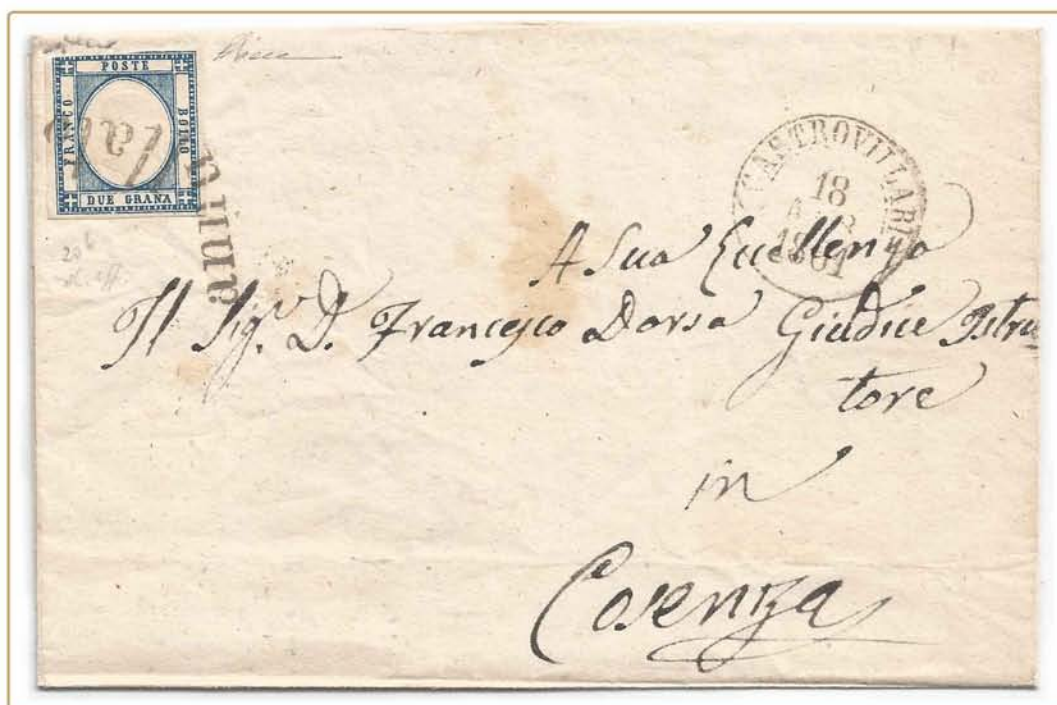 POSTE
FRANCO
BOLLO
DUE GRANA
annul
CASTROVILLARI
18
1861
A Sua Eccellenza
Il Sig.r D. Francesco Dorsa Giudice Istru
tore
in
Cosenza